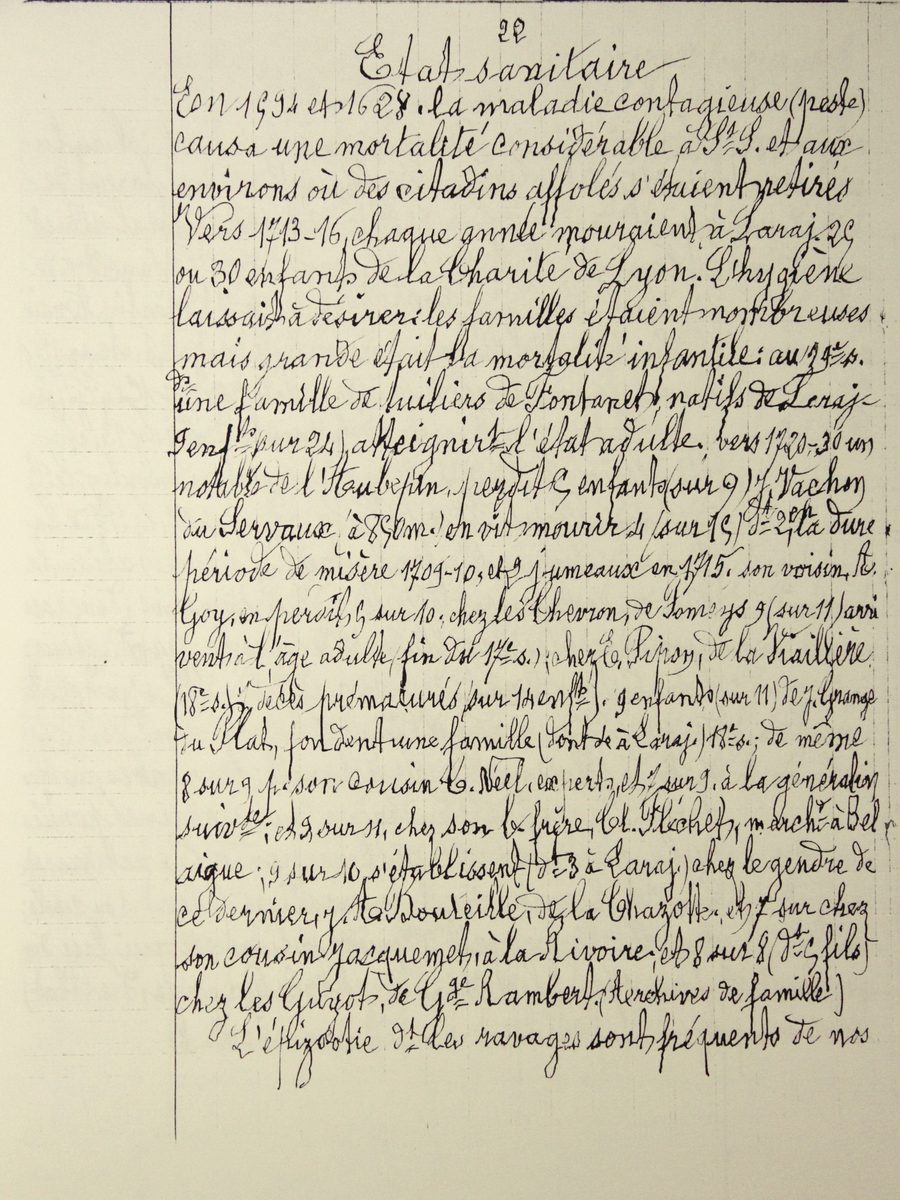 22
Etat sanitaire
En 1594 et 1628. la maladie contagieuse (peste)
causa une mortalité considérable à St S. et aux
environs où des citadins affolés s'étaient retirés
Vers 1713-16, chaque année mouraient à Laraj. 25
ou 30 enfants de la Charité de Lyon. L'hygiène
laissait à désirer: les familles étaient nombreuses
mais grande était la mortalité infantile: au s.
ds une famille de tuiliers de Fontanet, natifs de Laraj
9 enfts (sur 24) atteignirt l'état adulte. vers 1720-30 un
notable de l'Aubépin, perdit 5 enfants (sur 9) J. Vachon
du Servaux (à 850m.) en vit mourir 4 (sur 15) dt 2 la dure
période de misère 1709-10, et 2 jumeaux en 1715. son voisin, A.
Goy, en perdit 5 sur 10; chez les Chevron, de Pomeys 9 (sur 11) arri
vent à l'âge adulte (fin du 17e s.); chez E. Pipon, de la Viaillère
(18e s.) décès prématurés (sur 14 enfts). 9 enfants (sur 11) de J. Grange
du Plat, fondent une famille (dont à Laraj.) 18e s.; de même
8 sur 9 p. son cousin C. Néel, expert, et 7 sur 9. à la génération
suivte; et 9 sur 11, chez son b. frère, Cl. Fléchet, marchd à Bel
aigue; 9 sur 10, s'établissent (dt 3 à Laraj.) chez le gendre de
ce dernier, Bouteille, de la Chazotte. et 7 sur chez
son cousin Jacquemet, à la Rivoire; et 8 sur 8 (dt 5 fils)
chez les Guyot, de Gde Rambert, (Archives de famille)
L'épizootie dt les ravages sont fréquents de nos